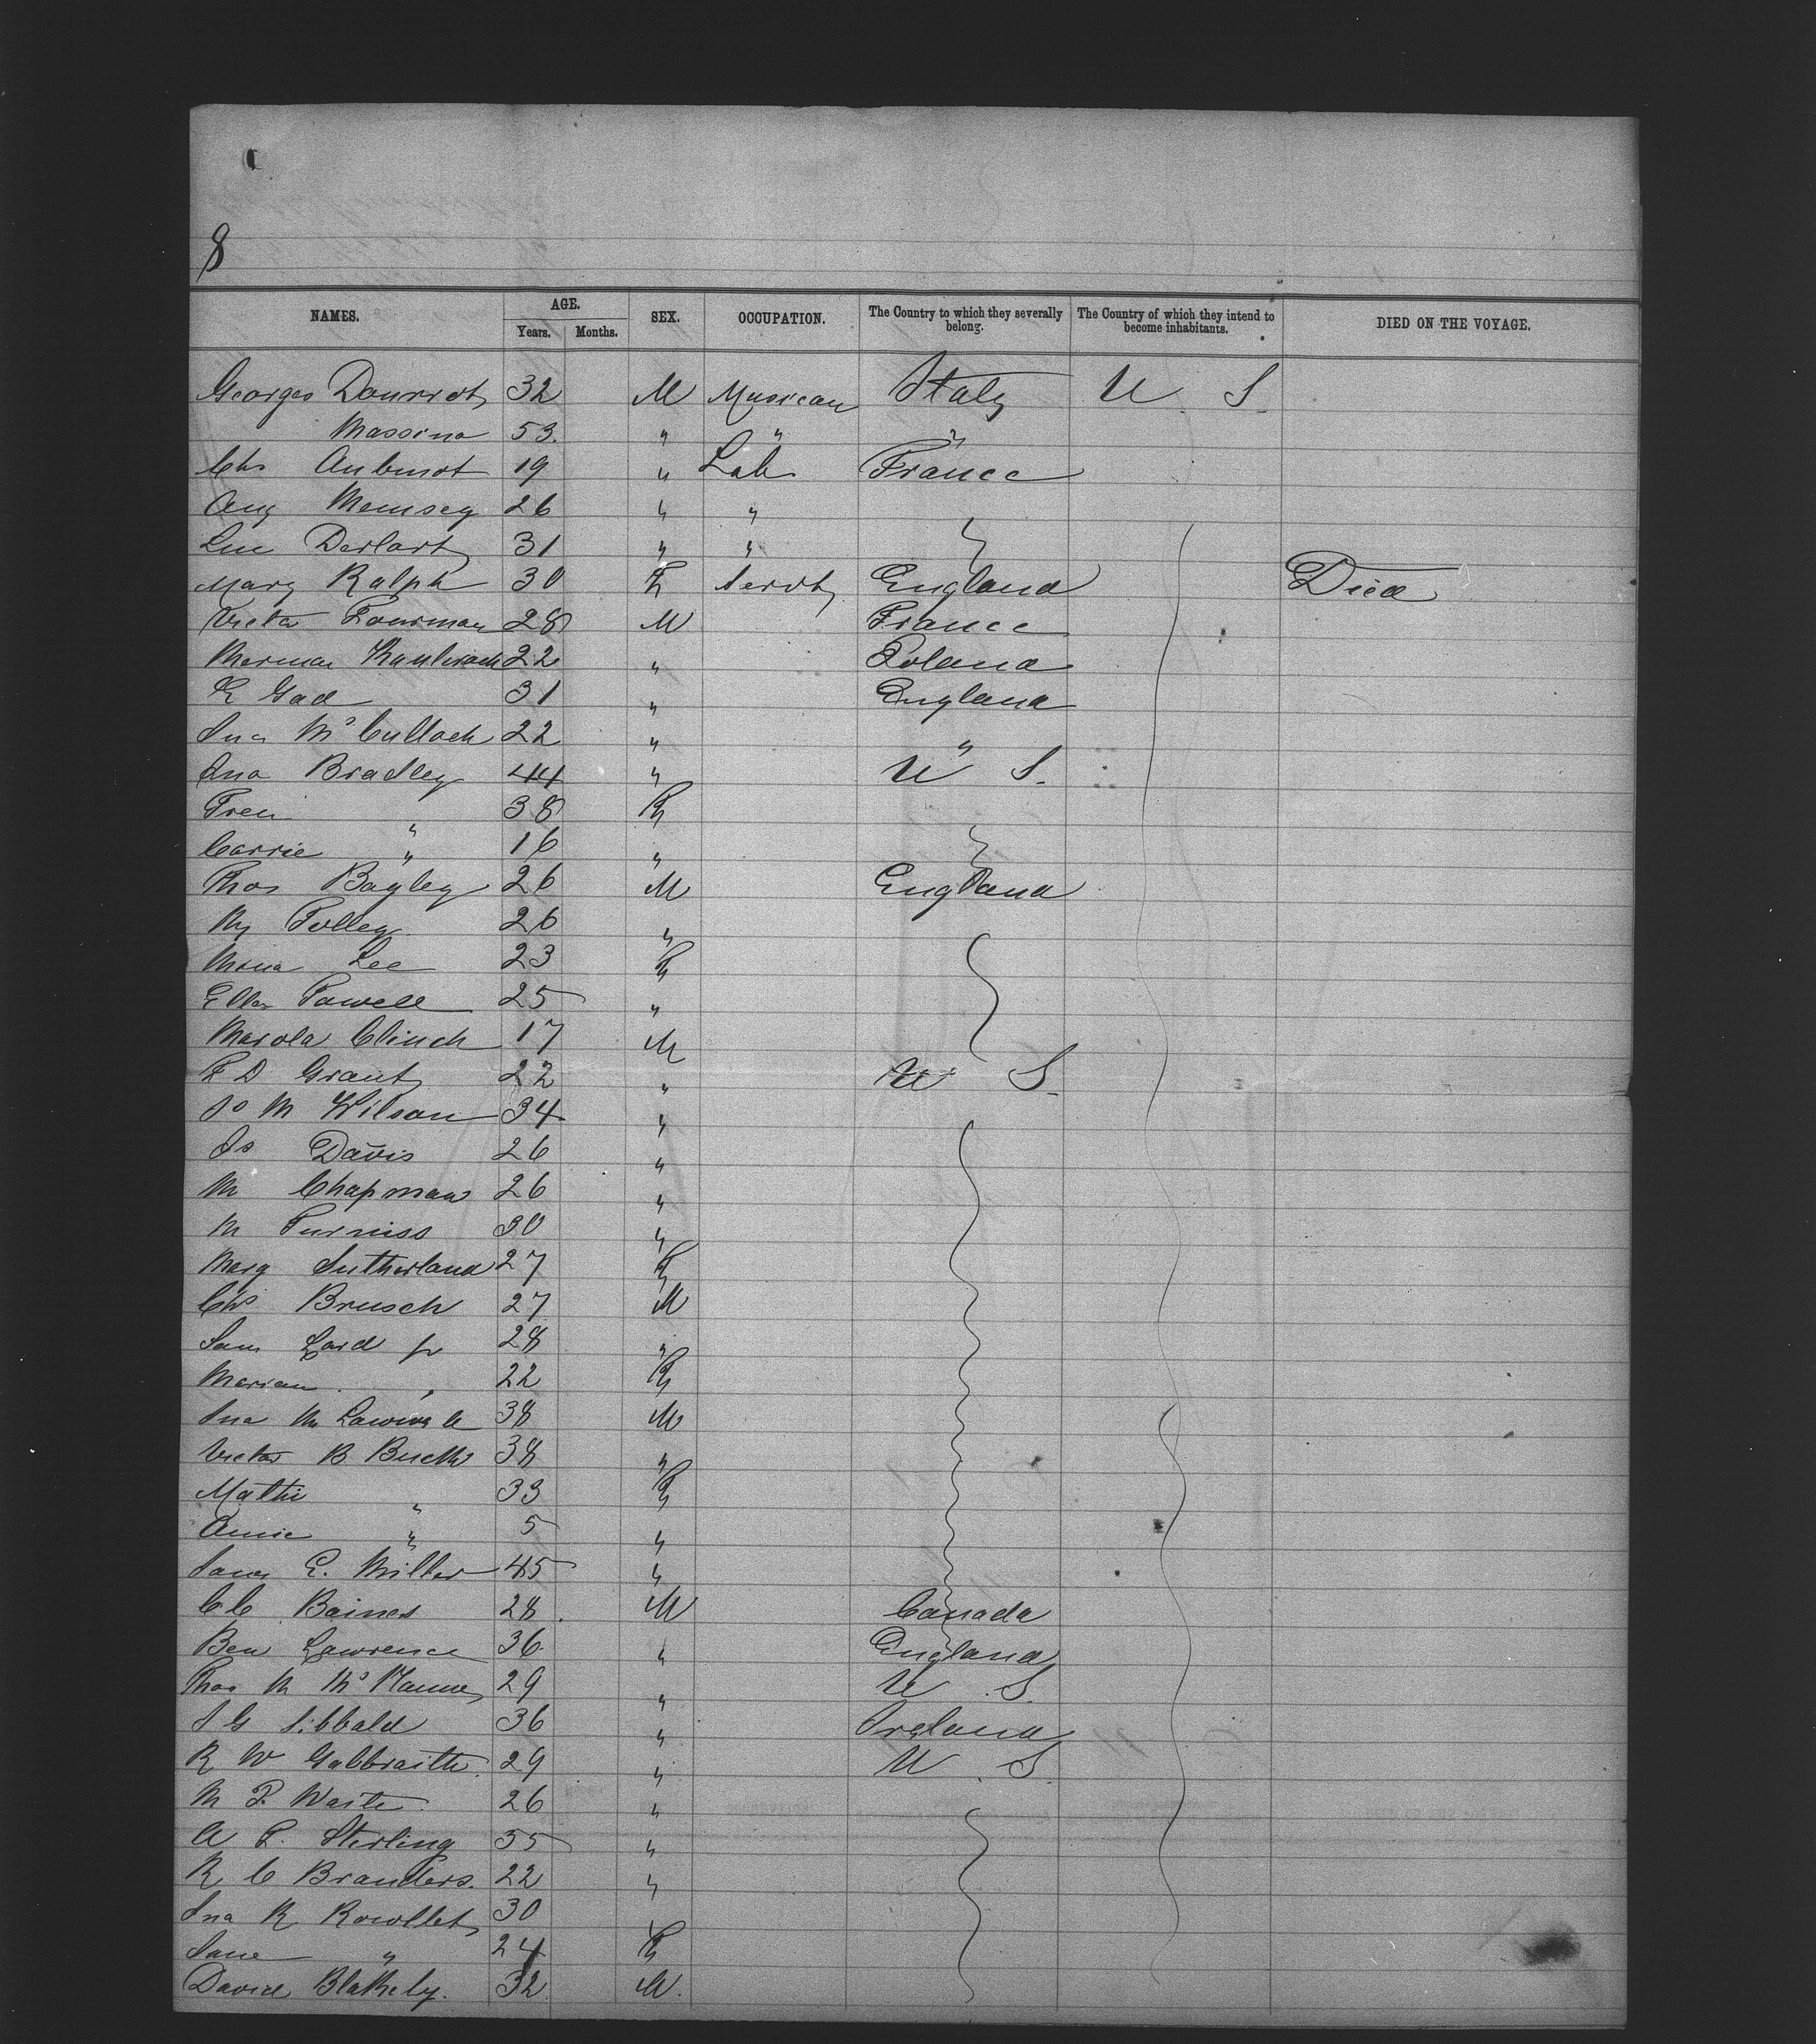 8
NAMES. AGE. SEX. OCCUPATION. The Country to which they severally belong. The Country of which they intend to become inhabitants. DIED ON THE VOYAGE.
Years. Months.
Georges 32 M Musican Italy U S
Massina 53 " " "
Chs 19 " Lab France
Aug 26 " "
31 " "
Mary Ralph 30 F Servt England Died
Victor Fourman 28 M France
Herman 22 " Poland
E Gad 31 " England
Jno McCulloch 22 " "
Jno Bradley 44 " U S
38 F
Carrie " 16 "
Thos Bagley 26 M England
Hy Polley 26 "
Mina Lee 23 F
Ellen Powell 25 "
Harold Clinch 17 M
F D Grant 22 " U S
M Wilson 34 "
Js Davis 26 "
M Chapman 26 "
M Furniss 30 "
Mary Sutherland 27 F
Chs Brusch 27 M
Sam Lord jr 28 "
Marian " 22 F
Jno M 38 M
Victor B 38 "
Mathi " 33 F
Amie " 5 "
E. Miller 45 "
C C Baines 28 M Canada
Ben Lawrence 36 " England
Thos M 29 " U S
J G Sibbald 36 " Ireland
R W Galbraith 29 " U S
H P Waite 26 "
A F. Sterling 55 "
R C Branders. 22 "
Jno R Rowllet 30 "
Jane " 24 F
David Blakely. 32 M.